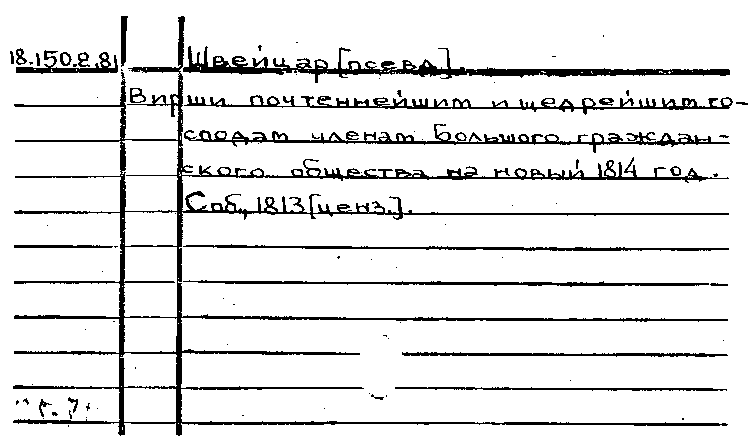 18.150.2.81 Швейцар [псевд].
Вирши почтеннейшим и щедрейшим го-
сподам членам большого граждан-
ского общества на новый 1814 год.
Спб., 1813 [ценз.].